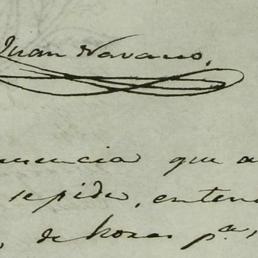 Juan Navarro.
que a
se pide, enten
, de horas p.ª